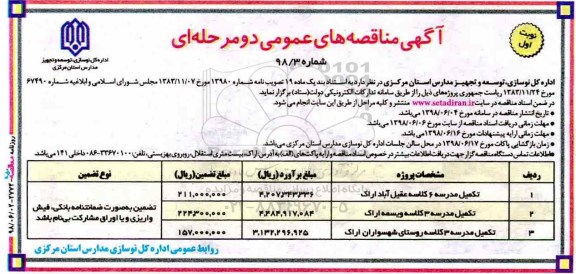 آگهی مناقصه‌های عمومی دو مرحله‌ای
شماره ۹۸/۳
نوبت اول
اداره کل نوسازی، توسعه و تجهیز مدارس استان مرکزی
اداره کل نوسازی، توسعه و تجهیز مدارس استان مرکزی در نظر دارد به استناد بند یک ماده ۱۹ تصویب نامه شماره ۱۳۹۸۰ مورخ ۱۳۸۳/۱۱/۰۷ مجلس شورای اسلامی و ابلاغیه شماره ۶۷۴۹۰
مورخ ۱۳۸۳/۱۱/۲۴ ریاست جمهوری پروژه‌های ذیل را از طریق سامانه تدارکات الکترونیکی دولت (ستاد) برگزار نماید.
در ضمن اسناد مناقصه در سایت www.setadiran.ir منتشر و کلیه مراحل از طریق این سایت انجام می شود.
* تاریخ انتشار مناقصه در سامانه مورخ ۱۳۹۸/۰۶/۰۴ می‌باشد.
* مهلت زمانی دریافت اسناد مناقصه از سایت مورخ ۱۳۹۸/۰۶/۰۶ می‌باشد.
* مهلت زمانی ارایه پیشنهادات مورخ ۱۳۹۸/۰۶/۱۶ می‌باشد.
* زمان بازگشایی پاکات مورخ ۱۳۹۸/۰۶/۱۷ در محل سالن جلسات اداره کل نوسازی مدارس استان مرکزی می‌باشد.
* اطلاعات تماس دستگاه مناقصه گزار جهت دریافت اطلاعات بیشتر در خصوص اسناد مناقصه و ارایه پاکت‌های (الف) به آدرس اراک، میدان بسیج، متری استقلال، روبروی بهزیستی، تلفن: ۳۳۶۷۰۱۰۰-۰۸۶ داخلی ۱۴۱ می‌باشد.
ردیف مشخصات پروژه مبلغ برآورد (ریال) مبلغ تضمین (ریال) نوع تضمین
۱ تکمیل مدرسه ۶ کلاسه عقیل آباد اراک ۴,۲۰۷,۳۴۳,۳۳۶ ۲۱۱,۰۰۰,۰۰۰
۲ تکمیل مدرسه ۳ کلاسه ویسمه اراک ۴,۴۸۴,۹۱۷,۰۸۴ ۲۲۴,۳۰۰,۰۰۰
۳ تکمیل مدرسه ۳ کلاسه روستای شهسواران اراک ۳,۱۳۲,۲۹۶,۹۲۵ ۱۵۷,۰۰۰,۰۰۰
تضمین به‌صورت ضمانتنامه بانکی، فیش
واریزی و یا اوراق مشارکت بی‌نام باشد
روابط عمومی اداره کل نوسازی مدارس استان مرکزی